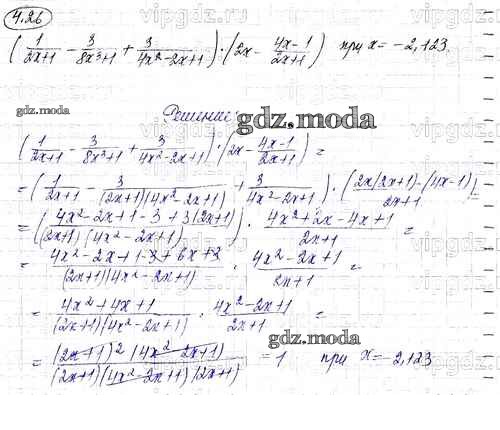 4.26
(1/(2x+1) - 3/(8x³+1) + 3/(4x²-2x+1)) · (2x - (4x-1)/(2x+1)) при x = -2,123.
Решение:
gdz.moda
(1/(2x+1) - 3/(8x³+1) + 3/(4x²-2x+1)) · (2x - (4x-1)/(2x+1)) =
= (1/(2x+1) - 3/((2x+1)(4x²-2x+1)) + 3/(4x²-2x+1)) · (2x(2x+1)-(4x-1))/(2x+1) =
= ((4x²-2x+1-3+3(2x+1))/((2x+1)(4x²-2x+1)) · (4x²+2x-4x+1)/(2x+1) =
= (4x²-2x+1-3+6x+3)/((2x+1)(4x²-2x+1)) · (4x²-2x+1)/(2x+1) =
= (4x²+4x+1)/((2x+1)(4x²-2x+1)) · (4x²-2x+1)/(2x+1) =
gdz.moda
= ((2x+1)²(4x²-2x+1))/((2x+1)(4x²-2x+1)(2x+1)) = 1 при x = -2,123
gdz.moda